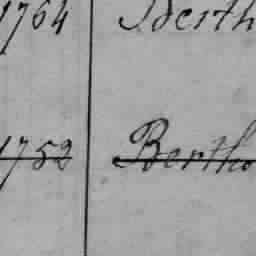 1764 Berth
1752 Bertho